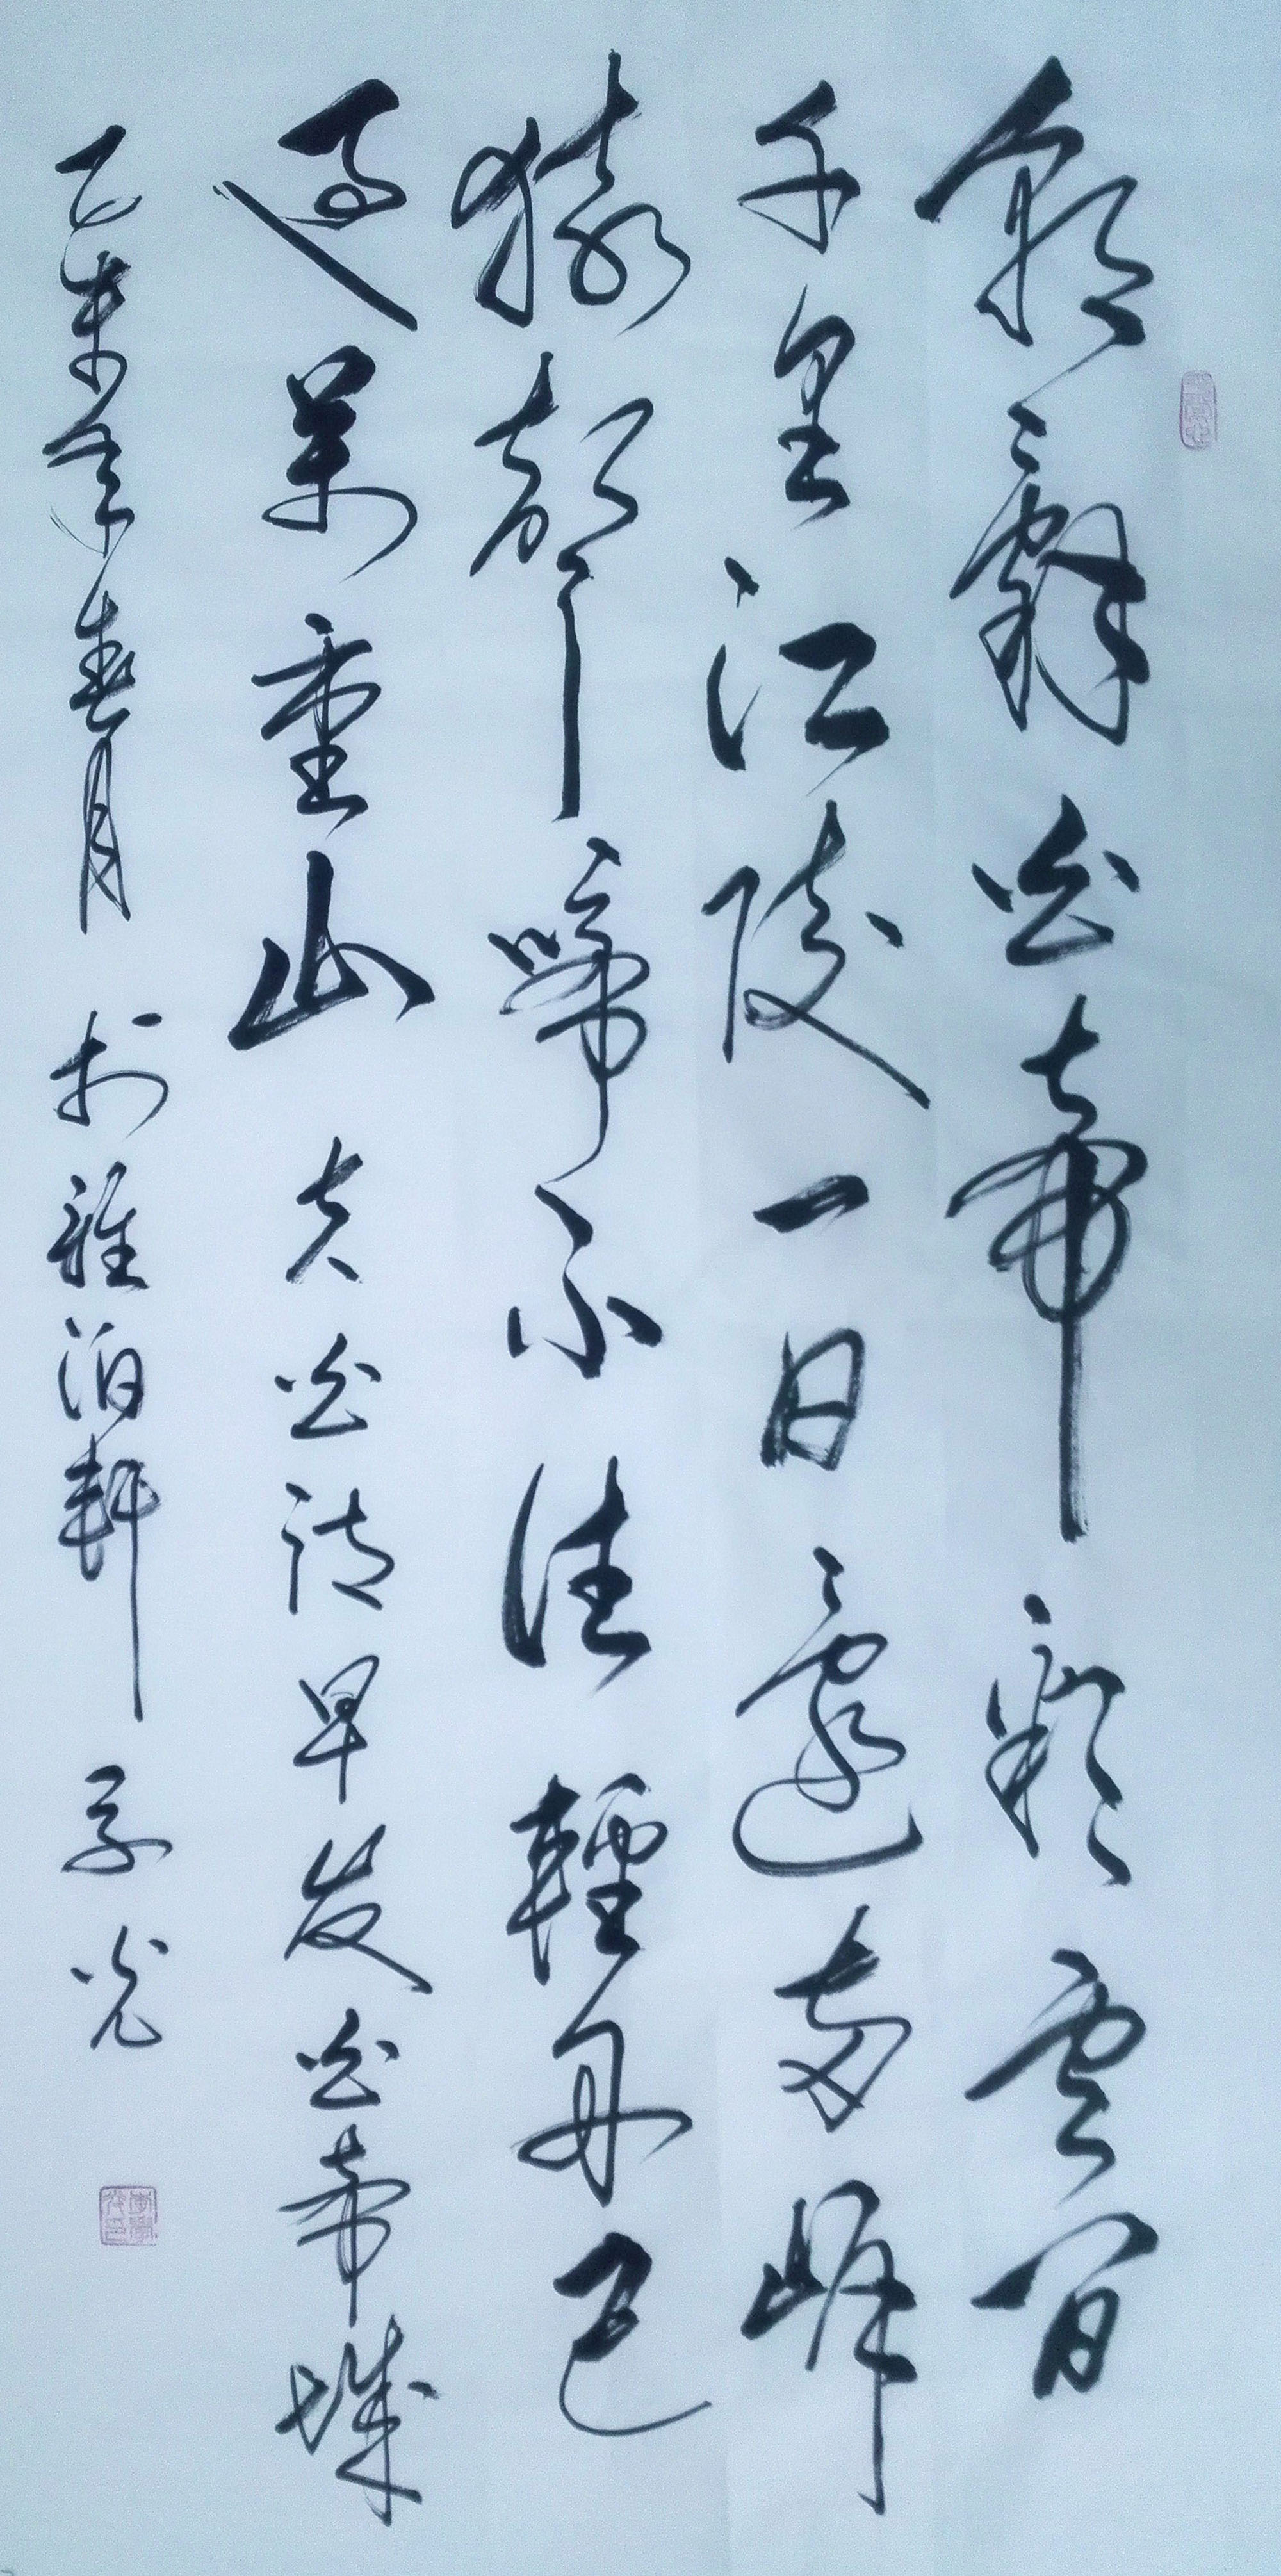 朝辭白帝彩雲間
千里江陵一日還兩岸
猿聲啼不住輕舟已
過萬重山 太白詩早发白帝城
乙未年春月 於雅泊軒 学光